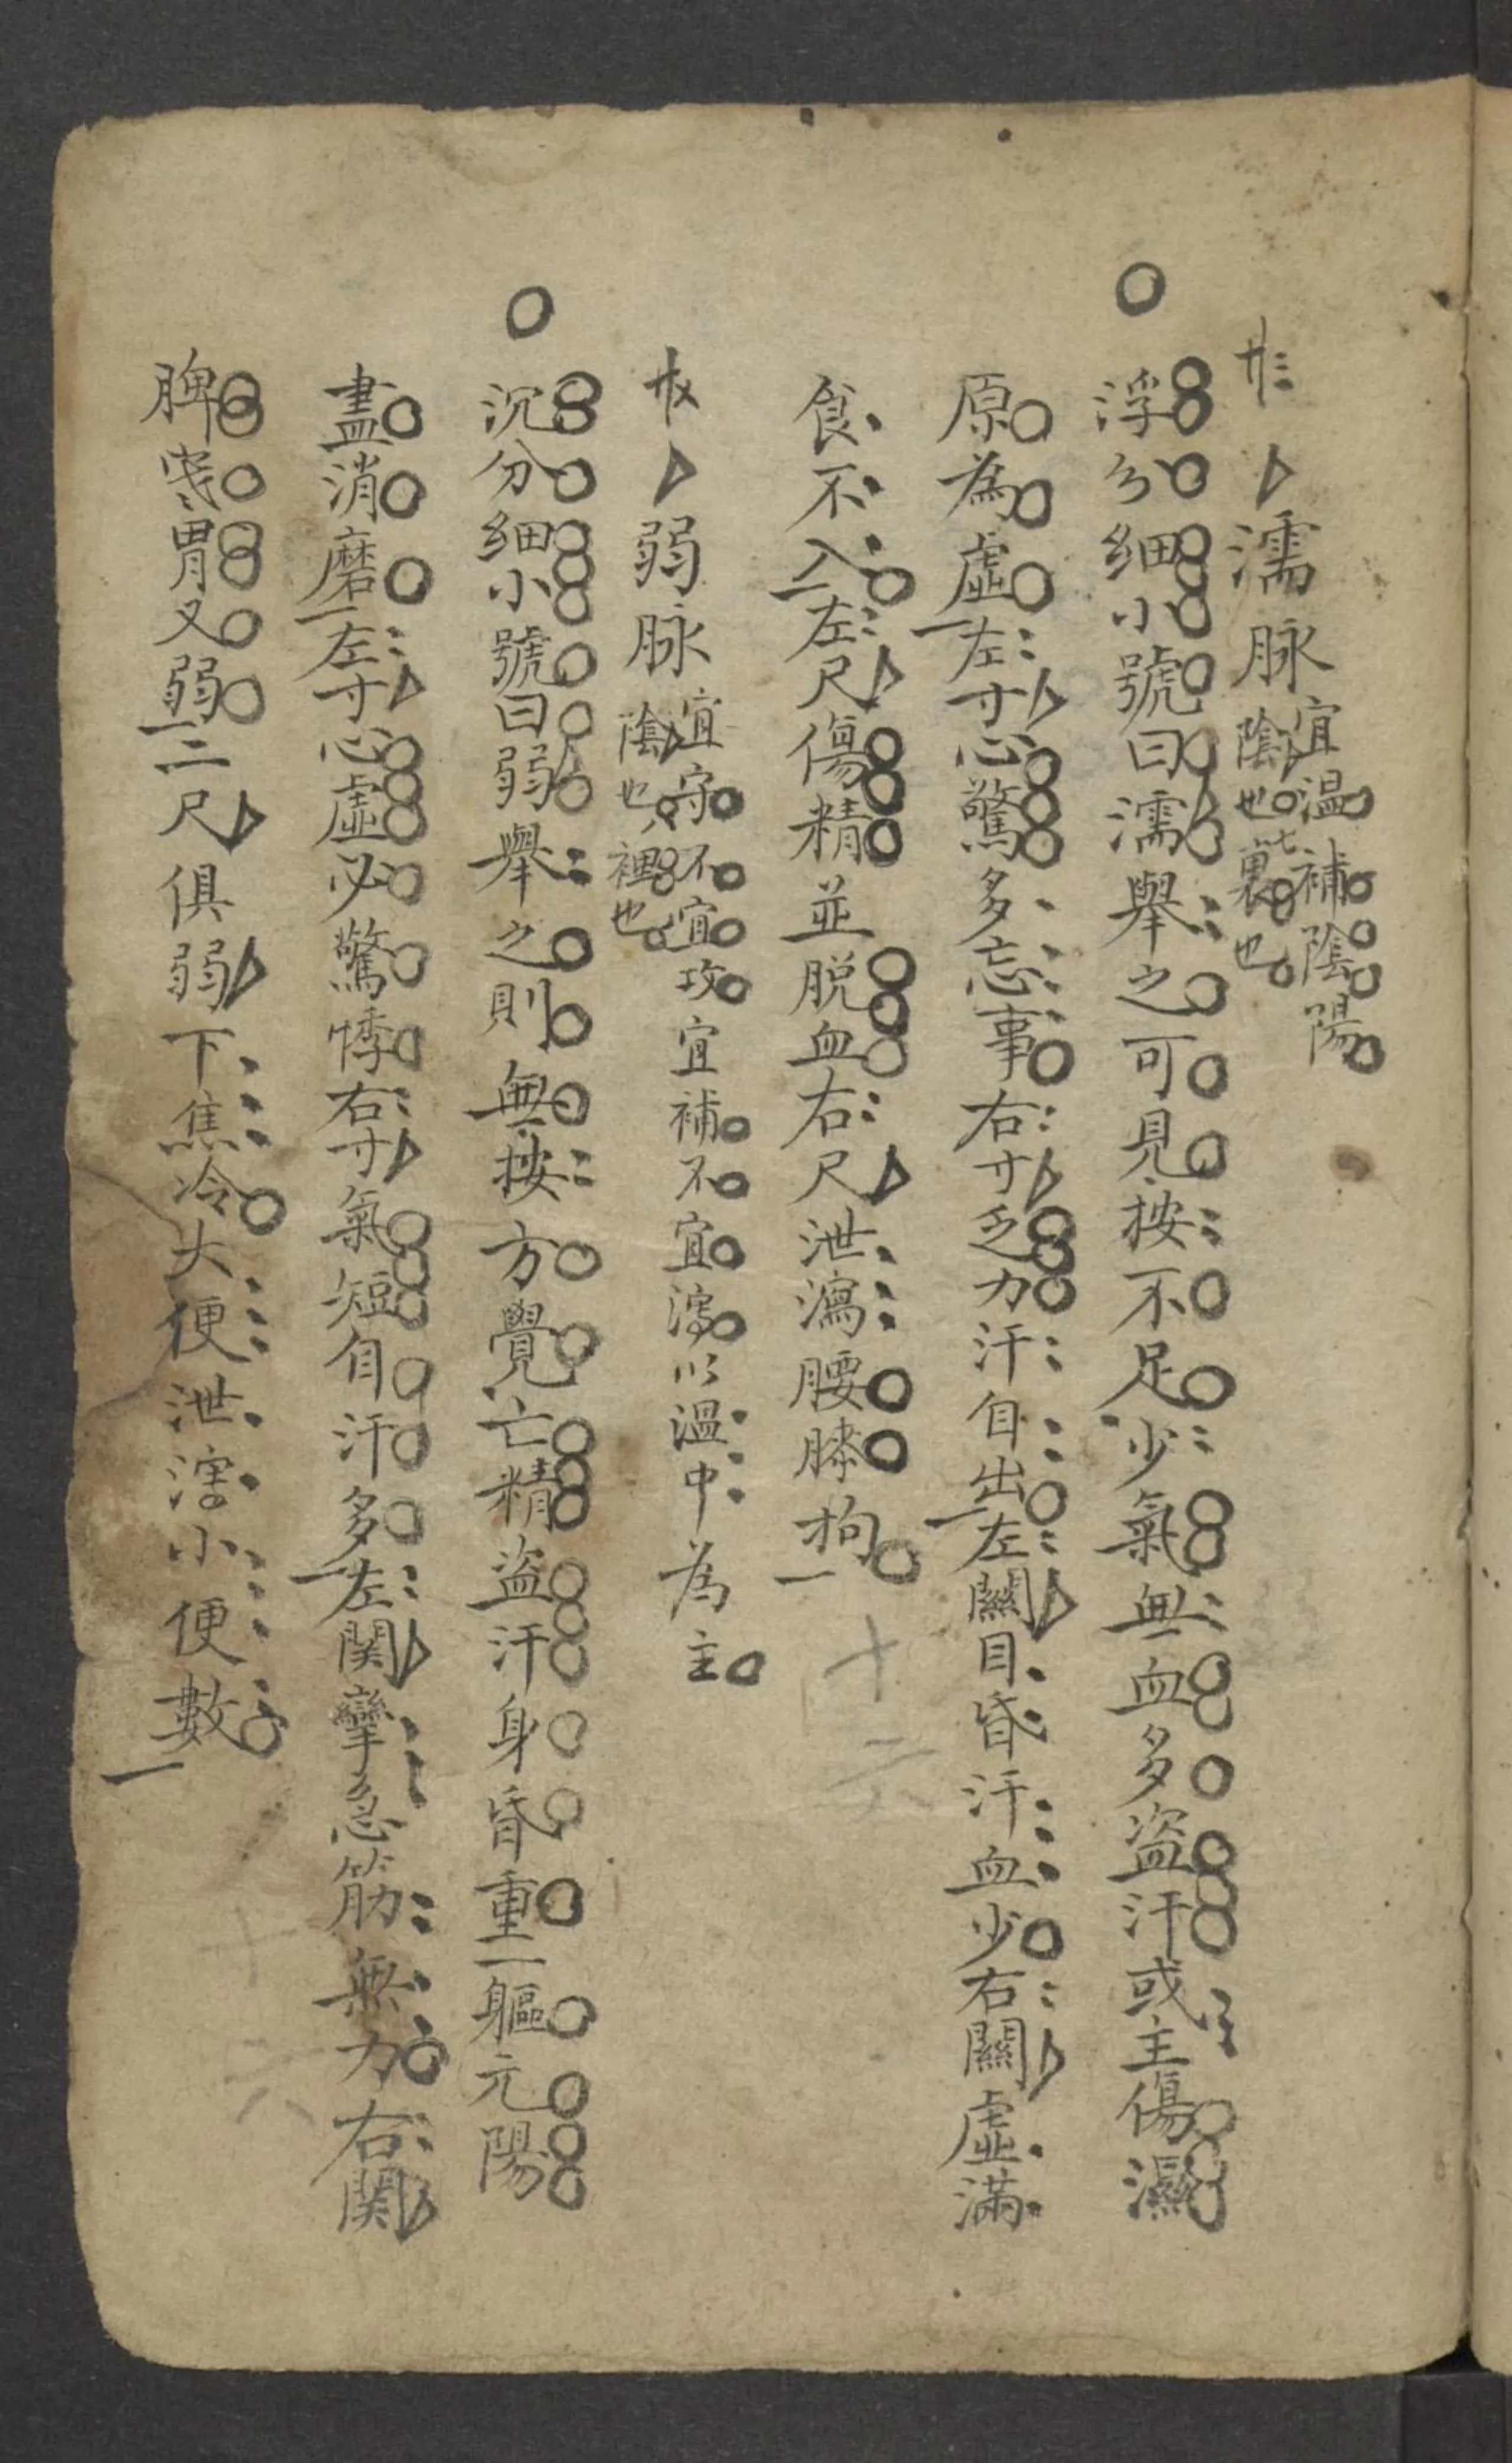 廿三 濡脉 宜温補陰陽
陰也裏也
浮分细小號曰濡舉之可見按不足少氣無血多盗汗或主傷濕
原為虛左寸心驚多忘事右寸乏力汗自出左關目昏汗血少右關虛滿
食不入左尺傷精並脱血右尺泄瀉腰膝拘
十六
廿乂 弱脉 宜守不宜攻宜補不宜瀉以溫中為主
陰也裡也
沉分细小號曰弱舉之則無按方覺亡精盗汗身昏重一軀元陽
盡消磨左寸心虛必驚悸右寸氣短自汗多左関攣急筋無力右関
脾寒胃又弱二尺俱弱下焦冷大便泄溏小便數
十六